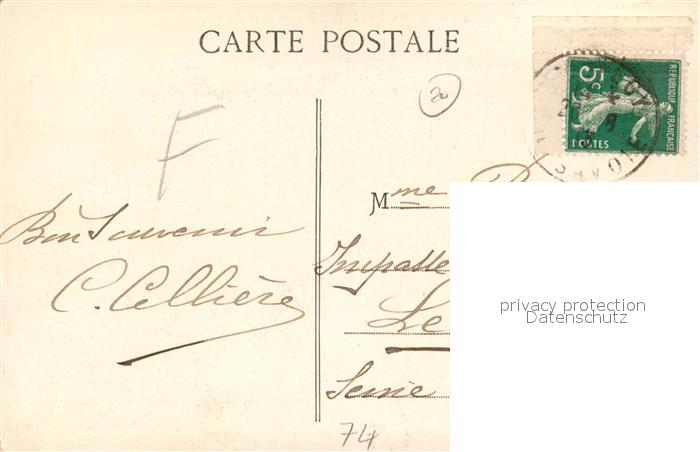 CARTE POSTALE
20
5c
REPUBLIQUE FRANÇAISE
POSTES
SAVOIE
F
Mme
Bon Souvenir
C. Cellière
Impasse
Le
Seine
74
privacy protection
Datenschutz